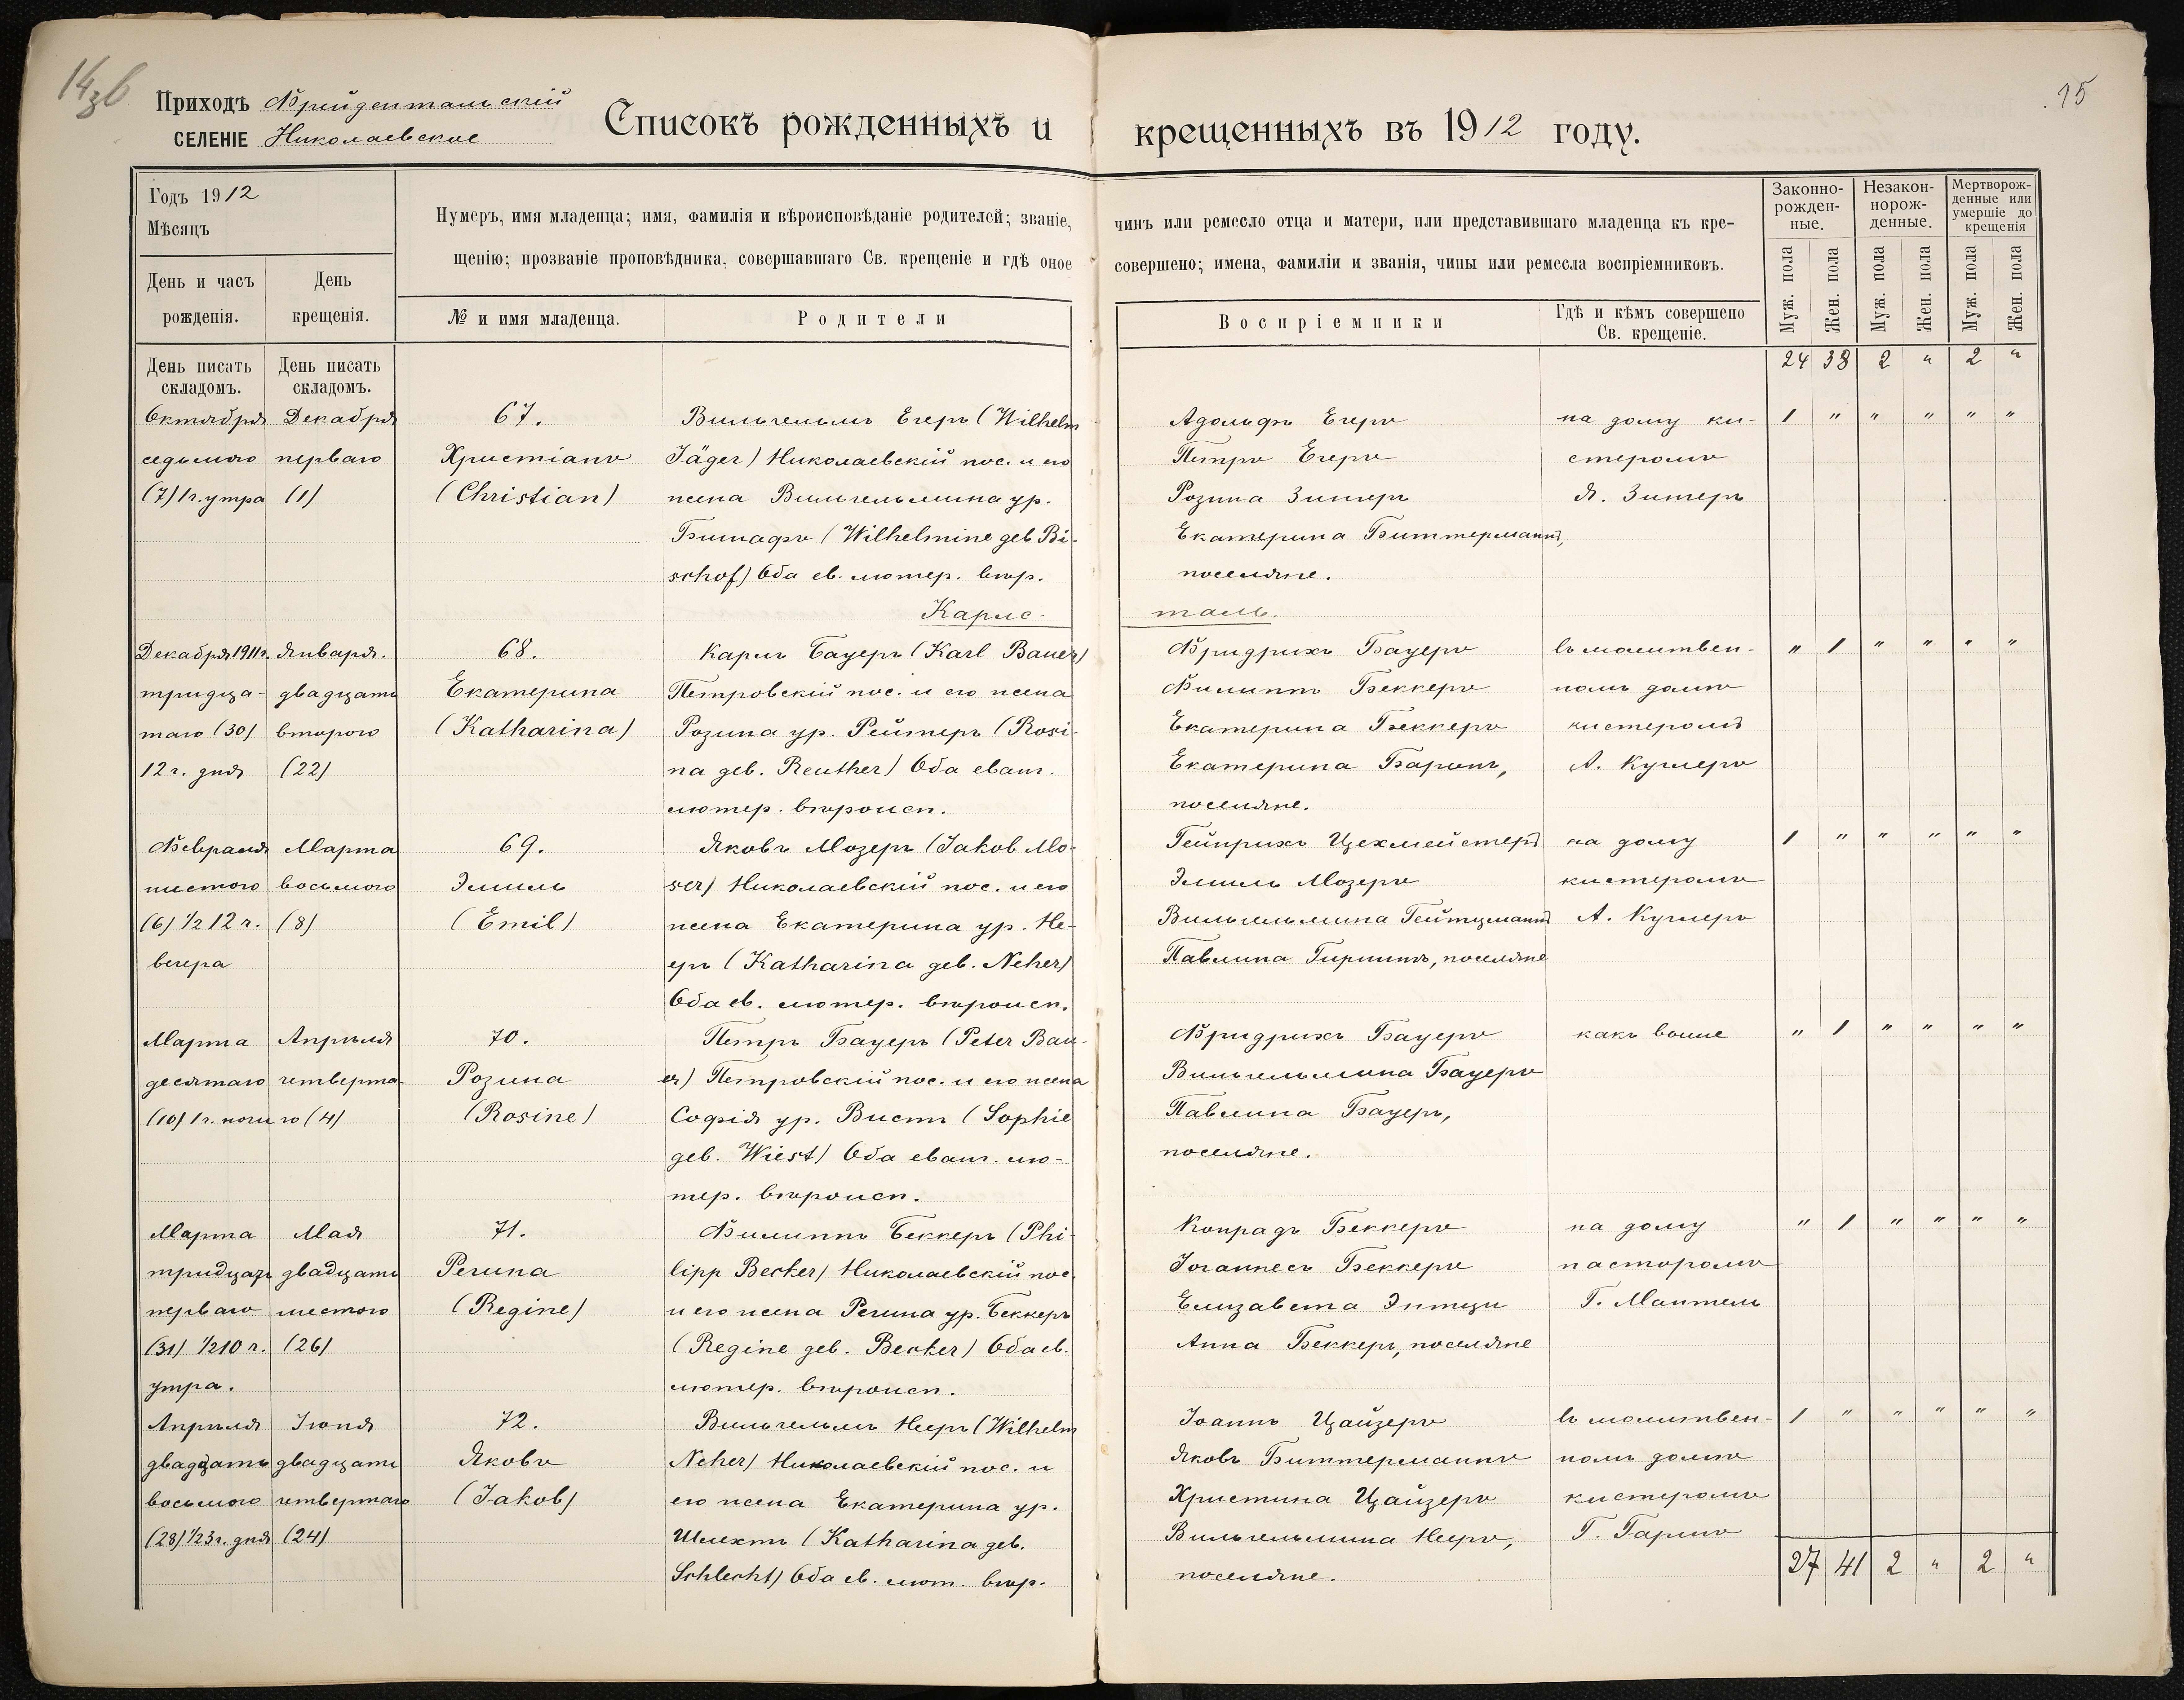 14зв
15
Приходъ Фрейдентальскій
СЕЛЕНІЕ Николаевское
Списокъ рожденныхъ и крещенныхъ въ 1912 году.
Годъ 1912
Мѣсяцъ
День и часъ рожденія.
День крещенія.
Нумеръ, имя младенца; имя, фамилія и вѣроисповѣданіе родителей; званіе, чинъ или ремесло отца и матери, или представившаго младенца къ кре-
щенію; прозваніе проповѣдника, совершавшаго Св. крещеніе и гдѣ оное совершено; имена, фамиліи и званія, чины или ремесла воспріемниковъ.
№ и имя младенца.
Родители
Воспріемники
Гдѣ и кѣмъ совершено
Св. крещеніе.
Законно-
рожден-
ные.
Незакон-
норож-
денные.
Мертворож-
денные или
умершіе до
крещенія
Муж. пола Жен. пола Муж. пола Жен. пола Муж. пола Жен. пола
День писать
складомъ.
День писать
складомъ.
24 38 2 " 2 "
Октября
седьмого
(7) 1 ч. утра
Декабря
перваго
(1)
67.
Христіанъ
(Christian)
Вильгельмъ Егеръ (Wilhelm
Jäger) Николаевскій пос. и его
жена Вильгельмина ур.
Бишафъ (Wilhelmine geb Bi-
schof) Оба ев. лютер. вѣр.
Адольфъ Егеръ
Петръ Егеръ
Розина Зитеръ
Екатерина Биттерманнъ,
поселяне.
на дому ки-
стеромъ
Я. Зитеръ
1 " " " " "
Карлс-
таль.
Декабря 1911 г.
тридца-
таго (30)
12 ч. дня
Января.
двадцать
второго
(22)
68.
Екатерина
(Katharina)
Карлъ Бауеръ (Karl Bauer)
Петровскій пос. и его жена
Розина ур. Рейтеръ (Rosi-
na geb. Reuther) Оба еванг.
лютер. вѣроисп.
Фридрихъ Бауеръ
Филиппъ Беккеръ
Екатерина Беккеръ
Екатерина Баронъ,
поселяне.
въ молитвен-
номъ домѣ
кистеромъ
А. Куглеръ
" 1 " " " "
Февраля
шестого
(6) 1/2 12 ч.
вечера
Марта
восьмого
(8)
69.
Эмиль
(Emil)
Яковъ Мозеръ (Jakob Mo-
ser) Николаевскій пос. и его
жена Екатерина ур. Не-
еръ (Katharina geb. Neher)
Оба ев. лютер. вѣроисп.
Гейнрихъ Цехмейстеръ
Эмиль Мозеръ
Вильгельмина Гейтцманнъ
Павлина Гиршъ, поселяне
на дому
кистеромъ
А. Куглеръ
1 " " " " "
Марта
десятаго
(10) 1 ч. ночи
Апрѣля
четверта-
го (4)
70.
Розина
(Rosine)
Петръ Бауеръ (Peter Bau-
er) Петровскій пос. и его жена
Софія ур. Вистъ (Sophie
geb. Wiest) Оба еванг. лю-
тер. вѣроисп.
Фридрихъ Бауеръ
Вильгельмина Бауеръ
Павлина Бауеръ,
поселяне.
какъ выше
" 1 " " " "
Марта
тридцать
перваго
(31) 1/2 10 ч.
утра.
Мая
двадцать
шестого
(26)
71.
Регина
(Regine)
Филиппъ Беккеръ (Phi-
lipp Becker) Николаевскій пос.
и его жена Регина ур. Беккеръ
(Regine geb. Becker) Оба ев.
лютер. вѣроисп.
Конрадъ Беккеръ
Іоганнесъ Беккеръ
Елизавета Энтци
Анна Беккеръ, поселяне
на дому
пасторомъ
Г. Мантель
" 1 " " " "
Апрѣля
двадцать
восьмого
(28) 1/2 3 ч. дня
Іюня
двадцать
четвертаго
(24)
72.
Яковъ
(Jakob)
Вильгельмъ Нееръ (Wilhelm
Neher) Николаевскій пос. и
его жена Екатерина ур.
Шлехтъ (Katharina geb.
Schlecht) Оба ев. лют. вѣр.
Іоаннъ Цайзеръ
Яковъ Биттерманнъ
Христина Цайзеръ
Вильгельмина Нееръ,
поселяне.
въ молитвен-
номъ домѣ
кистеромъ
Г. Гаршъ
1 " " " " "
27 41 2 " 2 "